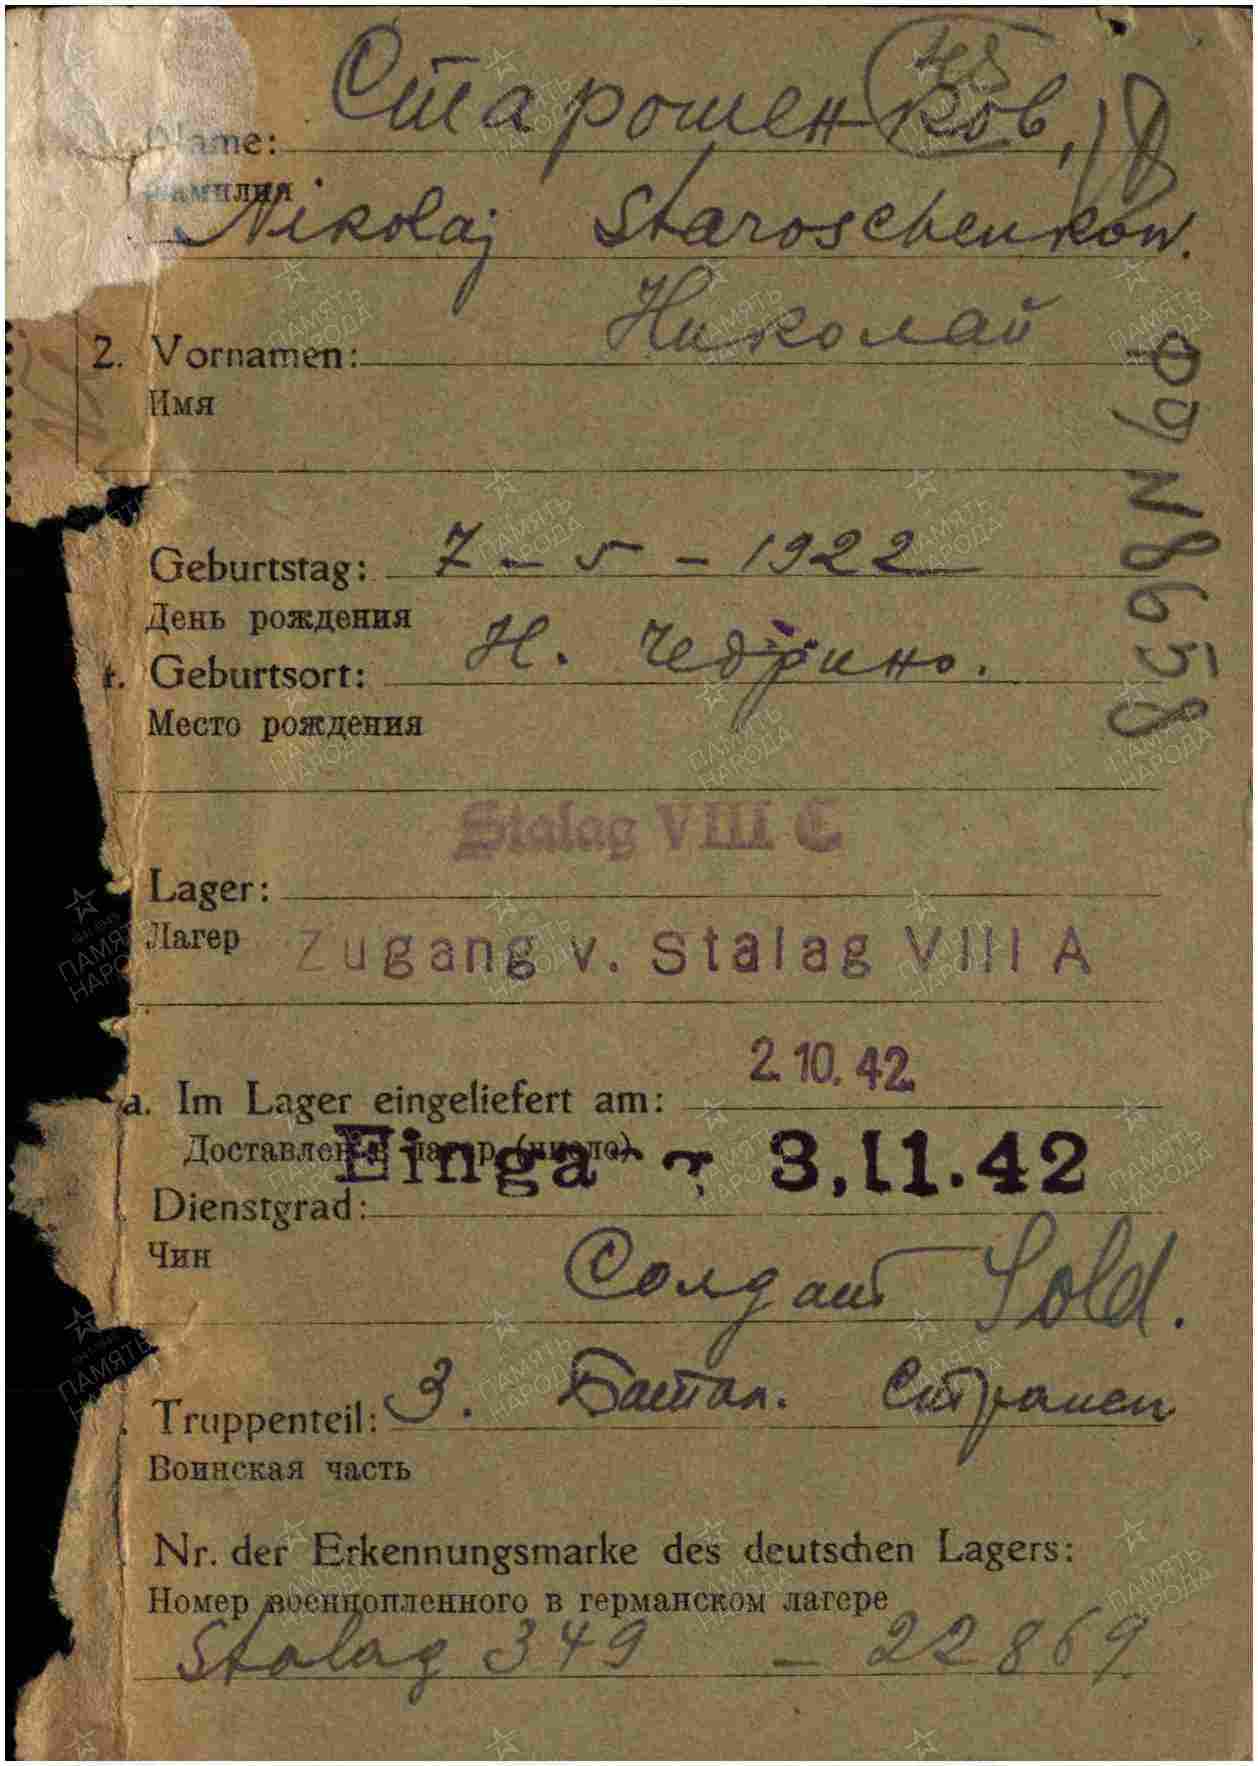 Старошенков,
Name:
Фамилия
Nikolaj Staroschenkow.
Николай
2. Vornamen:
Имя
Geburtstag: 7 - 5 - 1922
День рождения
Н. Чебрино.
4. Geburtsort:
Место рождения
Stalag VIII C
Lager:
Лагер
Zugang v. Stalag VIII A
2.10.42.
a. Im Lager eingeliefert am:
Доставлен в лагер (число)
Einga 3.11.42
Dienstgrad:
Чин
Солдат Sold.
Truppenteil: 3. Батал.
Воинская часть
Nr. der Erkennungsmarke des deutschen Lagers:
Номер военнопленного в германском лагере
Stalag 349 - 22869
N 8658
ПАМЯТЬ НАРОДА